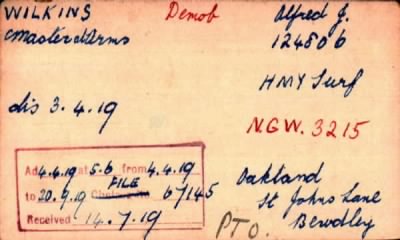 WILKINS Demob Alfred J.
Master at Arms 124806
HMY Surf
dis 3.4.19
N.G.W. 3215
Ad 4.4.19 at 5.6 from 4.4.19
to 20.9.19 FILE 67145
Received 14.7.19
Oakland
St Johns Lane
Bewdley
PTO.